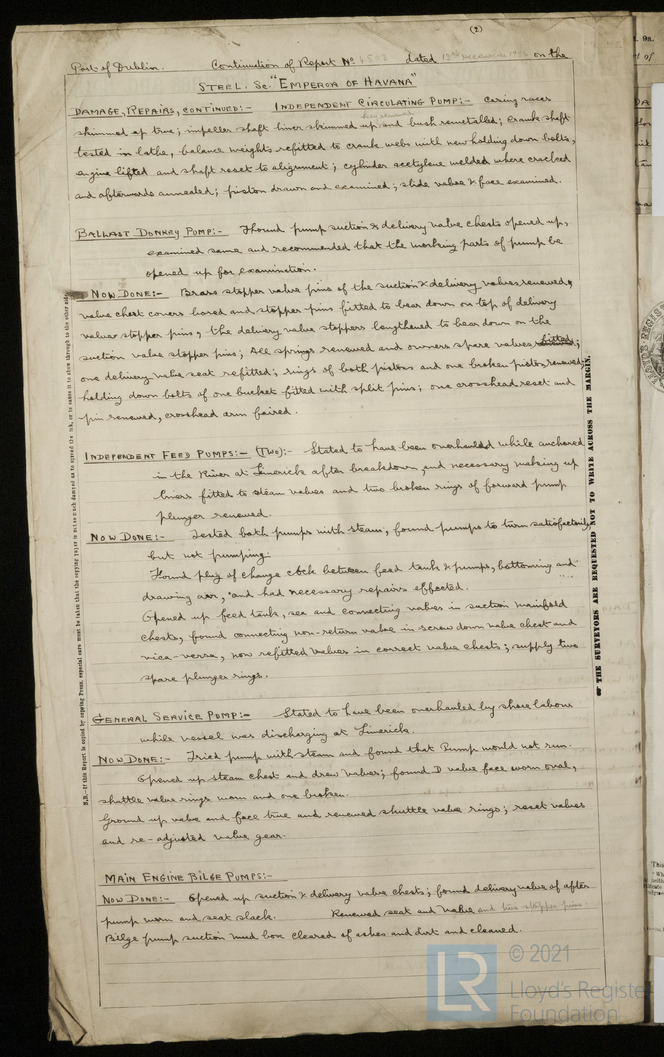 (2)
Port of Dublin. Continuation of Report No. dated on the
STEEL. Sc. "EMPEROR OF HAVANA"
DAMAGE, REPAIRS, CONTINUED:- INDEPENDENT CIRCULATING PUMP:- Casing races
skimmed up true; impeller shaft liner skimmed up and bush remetalled; crank shaft
tested in lathe, balance weights refitted to crank webs with new holding down bolts,
engine lifted and shaft reset to alignment; cylinder acetylene welded where cracked
and afterwards annealed; piston drawn and examined; slide valve & face examined.
BALLAST DONKEY PUMP:- Found pump suction & delivery valve chests opened up,
examined same and recommended that the working parts of pump be
opened up for examination.
NOW DONE:- Brass stopper valve pins of the suction & delivery valves renewed,
valve chest covers bored and stopper pins fitted to bear down on top of delivery
valves stopper pins, the delivery valve stoppers lengthened to bear down on the
suction valve stopper pins; All springs renewed and owners spare valves fitted;
one delivery valve seat refitted; rings of both pistons and one broken piston renewed;
holding down bolts of one bucket fitted with split pins; one crosshead reset and
pin renewed, crosshead arm faired.
INDEPENDENT FEED PUMPS:- (TWO):- Stated to have been overhauled while anchored
in the River at Limerick after breakdown, and necessary making up
liners fitted to steam valves and two broken rings of forward pump
plunger renewed.
NOW DONE:- Tested both pumps with steam, found pumps to turn satisfactorily,
but not pumping.
Found plug of change cock between feed tank & pumps, bottoming and
drawing air, and had necessary repairs effected.
Opened up feed tank, sea and connecting valves in suction manifold
chests, found connecting non-return valve in screw down valve chest and
vica-versa, now refitted valves in correct valve chests; supply two
spare plunger rings.
GENERAL SERVICE PUMP:- Stated to have been overhauled by shore labour
while vessel was discharging at Limerick.
NOW DONE:- Tried pump with steam and found that Pump would not run.
Opened up steam chest and drew valves; found D valve face worn oval,
shuttle valve rings worn and one broken.
Ground up valve and face true and renewed shuttle valve rings; reset valves
and re-adjusted valve gear.
MAIN ENGINE BILGE PUMPS:-
NOW DONE:- Opened up suction & delivery valve chests; found delivery valve of after
pump worn and seat slack. Renewed seat and valve and two stopper pins.
Bilge pump suction mud box cleared of ashes and dirt and cleaned.
N.B.—If this Report is copied by copying Press, especial care must be taken that the copying paper is not so much damped as to spread the ink, or to cause it to show through to the other side.
THE SURVEYORS ARE REQUESTED NOT TO WRITE ACROSS THE MARGIN.
LR
© 2021
Lloyd's Register
Foundation